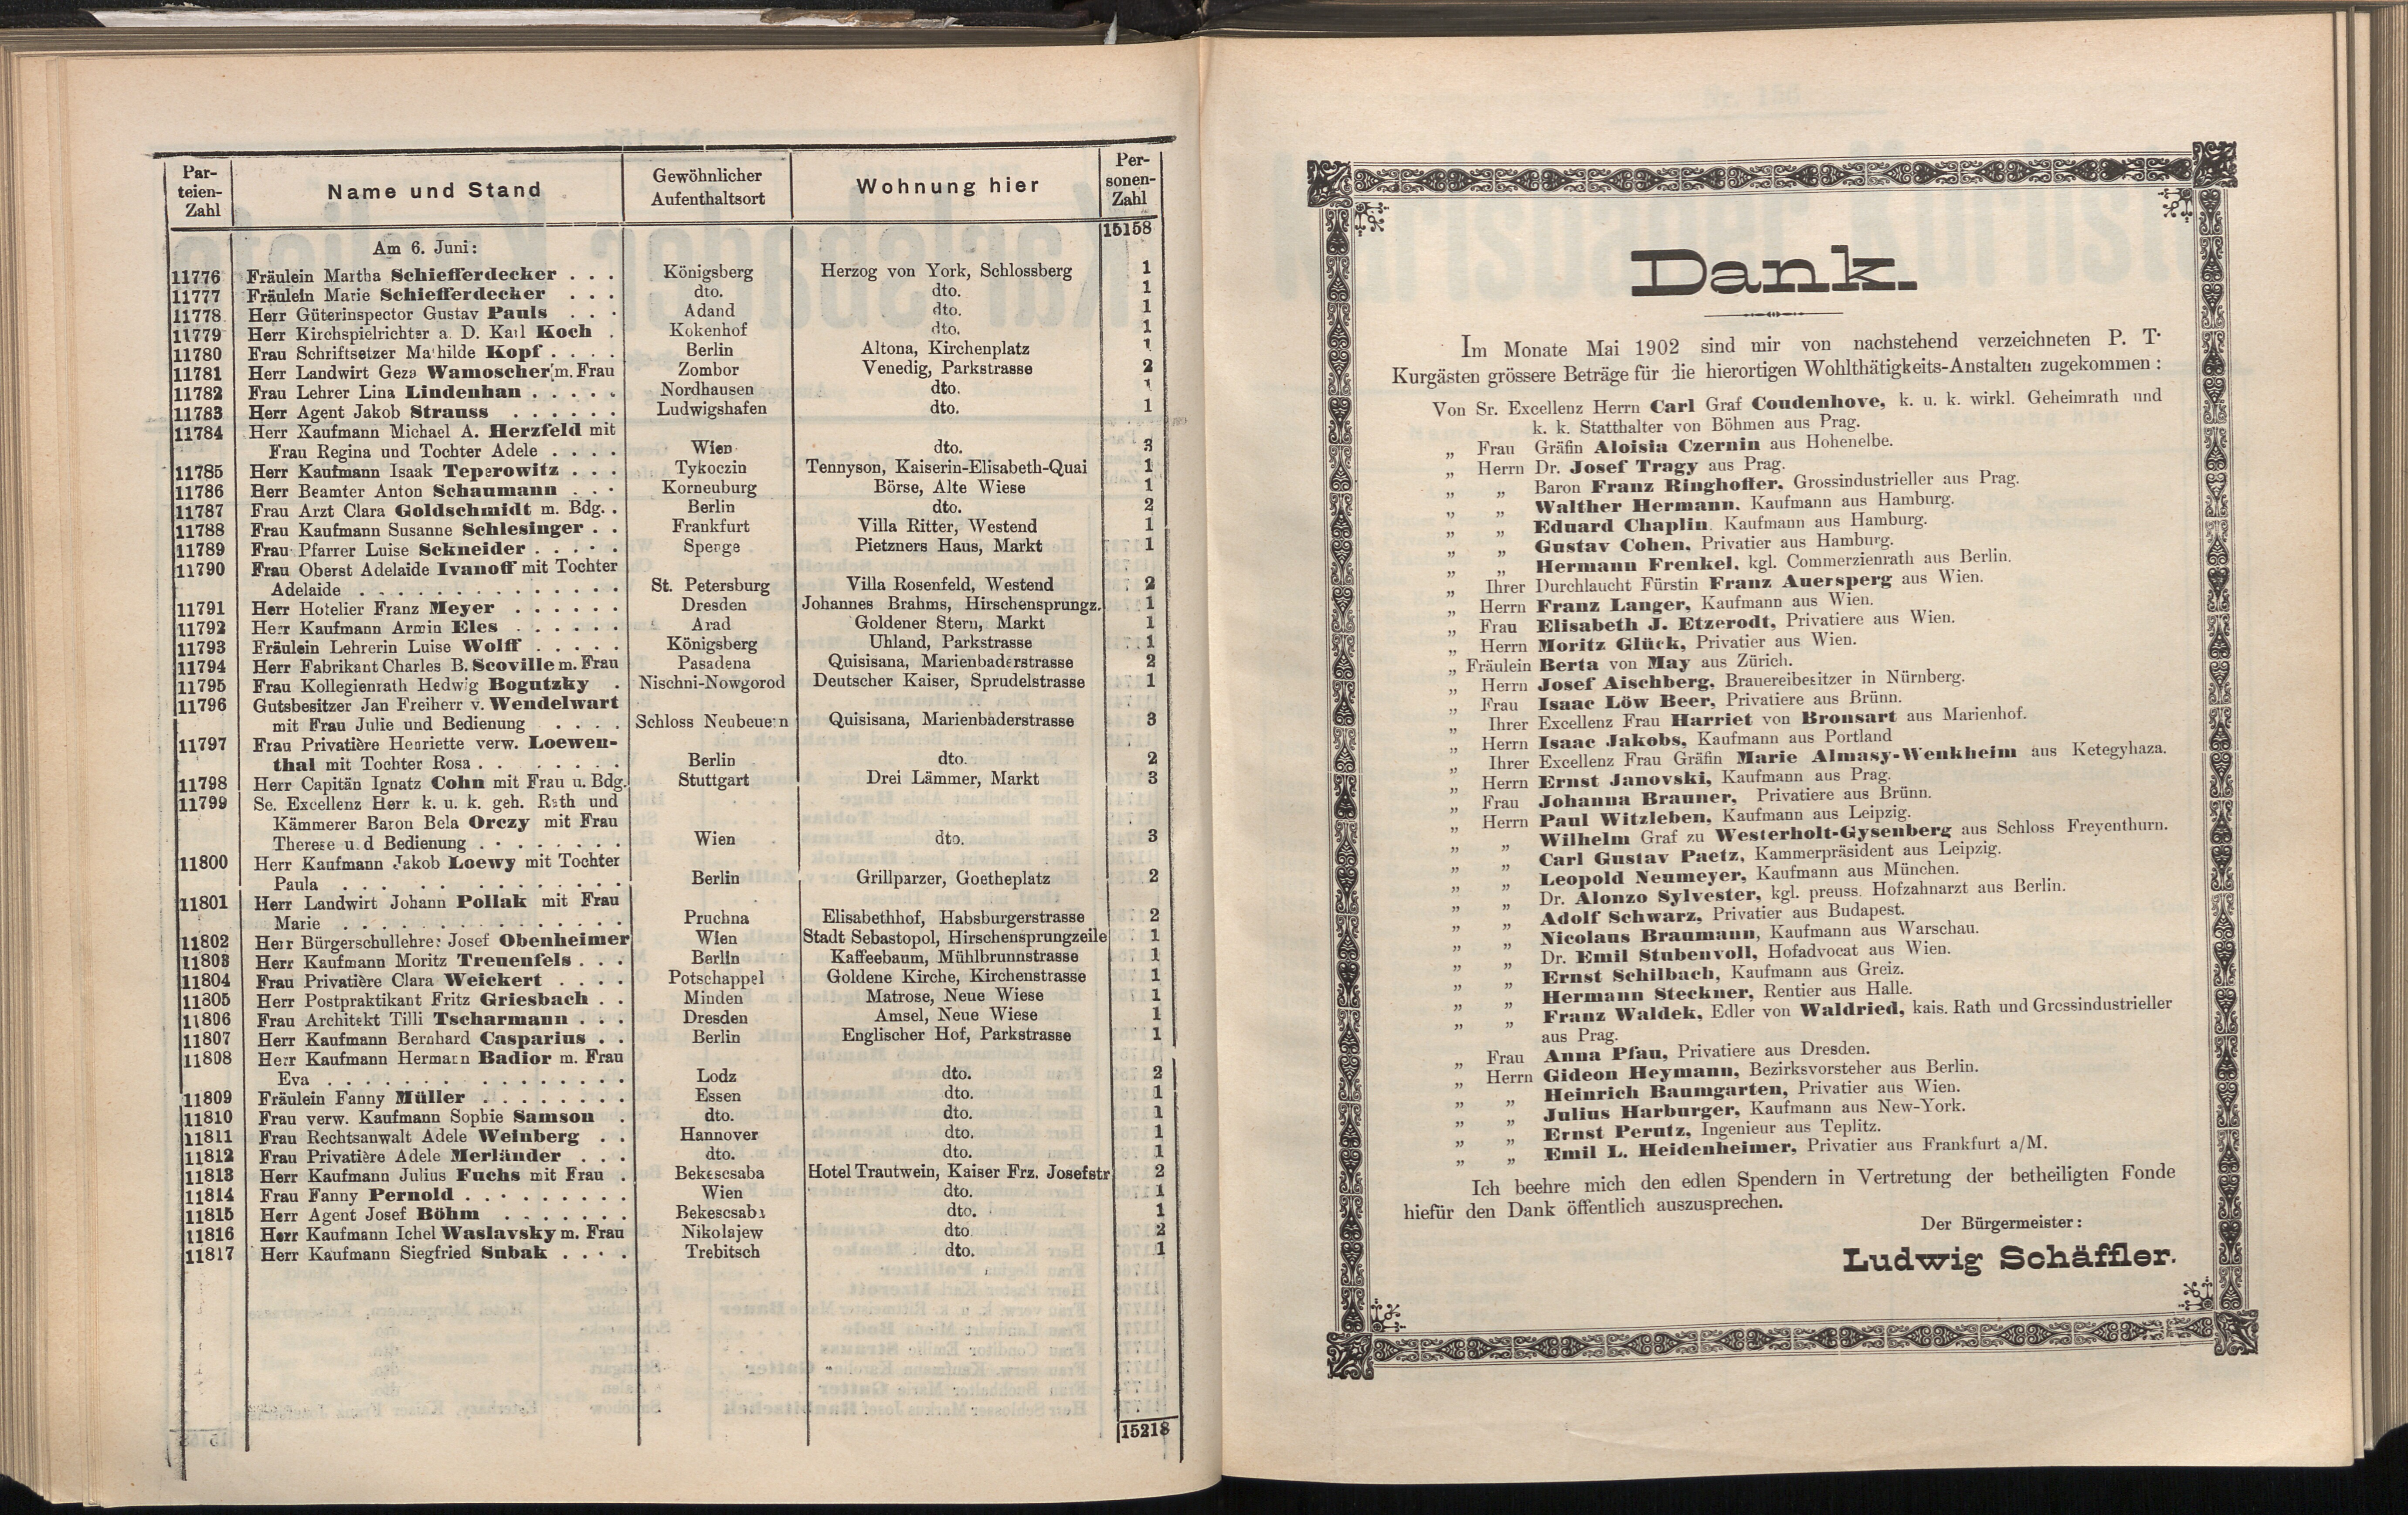 Par-
teien-
Zahl
Name und Stand
Gewöhnlicher
Aufenthaltsort
Wohnung hier
Per-
sonen-
Zahl
15158
Am 6. Juni:
11776 Fräulein Martha Schiefferdecker . . . Königsberg Herzog von York, Schlossberg 1
11777 Fräulein Marie Schiefferdecker . . . dto. dto. 1
11778 Herr Güterinspector Gustav Pauls . . . Adand dto. 1
11779 Herr Kirchspielrichter a. D. Karl Koch . Kokenhof dto. 1
11780 Frau Schriftsetzer Mathilde Kopf . . . . Berlin Altona, Kirchenplatz 1
11781 Herr Landwirt Geza Wamoscher m. Frau Zombor Venedig, Parkstrasse 2
11782 Frau Lehrer Lina Lindenhan . . . . . Nordhausen dto. 1
11783 Herr Agent Jakob Strauss . . . . . . Ludwigshafen dto. 1
11784 Herr Kaufmann Michael A. Herzfeld mit
Frau Regina und Tochter Adele . . . . Wien dto. 3
11785 Herr Kaufmann Isaak Teperowitz . . . Tykoczin Tennyson, Kaiserin-Elisabeth-Quai 1
11786 Herr Beamter Anton Schaumann . . . Korneuburg Börse, Alte Wiese 1
11787 Frau Arzt Clara Goldschmidt m. Bdg. . Berlin dto. 2
11788 Frau Kaufmann Susanne Schlesinger . . Frankfurt Villa Ritter, Westend 1
11789 Frau Pfarrer Luise Sckneider . . . . . Spenge Pietzners Haus, Markt 1
11790 Frau Oberst Adelaide Ivanoff mit Tochter
Adelaide . . . . . . . . . . . . . . St. Petersburg Villa Rosenfeld, Westend 2
11791 Herr Hotelier Franz Meyer . . . . . . Dresden Johannes Brahms, Hirschensprungz. 1
11792 Herr Kaufmann Armin Eles . . . . . . Arad Goldener Stern, Markt 1
11793 Fräulein Lehrerin Luise Wolff . . . . . Königsberg Uhland, Parkstrasse 1
11794 Herr Fabrikant Charles B. Scoville m. Frau Pasadena Quisisana, Marienbaderstrasse 2
11795 Frau Kollegienrath Hedwig Bogutzky . Nischni-Nowgorod Deutscher Kaiser, Sprudelstrasse 1
11796 Gutsbesitzer Jan Freiherr v. Wendelwart
mit Frau Julie und Bedienung . . . . Schloss Neubeuern Quisisana, Marienbaderstrasse 3
11797 Frau Privatière Henriette verw. Loewen-
thal mit Tochter Rosa . . . . . . . . Berlin dto. 2
11798 Herr Capitän Ignatz Cohn mit Frau u. Bdg. Stuttgart Drei Lämmer, Markt 3
11799 Se. Excellenz Herr k. u. k. geh. Rath und
Kämmerer Baron Bela Orczy mit Frau
Therese und Bedienung . . . . . . . . Wien dto. 3
11800 Herr Kaufmann Jakob Loewy mit Tochter
Paula . . . . . . . . . . . . . . Berlin Grillparzer, Goetheplatz 2
11801 Herr Landwirt Johann Pollak mit Frau
Marie . . . . . . . . . . . . . . Pruchna Elisabethhof, Habsburgerstrasse 2
11802 Herr Bürgerschullehrer Josef Obenheimer Wien Stadt Sebastopol, Hirschensprungzeile 1
11803 Herr Kaufmann Moritz Treuenfels . . . Berlin Kaffeebaum, Mühlbrunnstrasse 1
11804 Frau Privatière Clara Weickert . . . . Potschappel Goldene Kirche, Kirchenstrasse 1
11805 Herr Postpraktikant Fritz Griesbach . . Minden Matrose, Neue Wiese 1
11806 Frau Architekt Tilli Tscharmann . . . Dresden Amsel, Neue Wiese 1
11807 Herr Kaufmann Bernhard Casparius . . Berlin Englischer Hof, Parkstrasse 1
11808 Herr Kaufmann Hermann Badior m. Frau
Eva . . . . . . . . . . . . . . . Lodz dto. 2
11809 Fräulein Fanny Müller . . . . . . . . Essen dto. 1
11810 Frau verw. Kaufmann Sophie Samson . dto. dto. 1
11811 Frau Rechtsanwalt Adele Weinberg . . Hannover dto. 1
11812 Frau Privatière Adele Merländer . . . dto. dto. 1
11813 Herr Kaufmann Julius Fuchs mit Frau . Bekescsaba Hotel Trautwein, Kaiser Frz. Josefstr 2
11814 Frau Fanny Pernold . . . . . . . . . Wien dto. 1
11815 Herr Agent Josef Böhm . . . . . . . Bekescsaba dto. 1
11816 Herr Kaufmann Ichel Waslavsky m. Frau Nikolajew dto 2
11817 Herr Kaufmann Siegfried Subak . . . . Trebitsch dto. 1
15218
Dank.
Im Monate Mai 1902 sind mir von nachstehend verzeichneten P. T.
Kurgästen grössere Beträge für die hierortigen Wohlthätigkeits-Anstalten zugekommen:
Von Sr. Excellenz Herrn Carl Graf Coudenhove, k. u. k. wirkl. Geheimrath und
k. k. Statthalter von Böhmen aus Prag.
„ Frau Gräfin Aloisia Czernin aus Hohenelbe.
„ Herrn Dr. Josef Tragy aus Prag.
„ „ Baron Franz Ringhoffer, Grossindustrieller aus Prag.
„ „ Walther Hermann, Kaufmann aus Hamburg.
„ „ Eduard Chaplin, Kaufmann aus Hamburg.
„ „ Gustav Cohen, Privatier aus Hamburg.
„ „ Hermann Frenkel, kgl. Commerzienrath aus Berlin.
„ Ihrer Durchlaucht Fürstin Franz Auersperg aus Wien.
„ Herrn Franz Langer, Kaufmann aus Wien.
„ Frau Elisabeth J. Etzerodt, Privatiere aus Wien.
„ Herrn Moritz Glück, Privatier aus Wien.
„ Fräulein Berta von May aus Zürich.
„ Herrn Josef Aischberg, Brauereibesitzer in Nürnberg.
„ Frau Isaac Löw Beer, Privatiere aus Brünn.
„ Ihrer Excellenz Frau Harriet von Bronsart aus Marienhof.
„ Herrn Isaac Jakobs, Kaufmann aus Portland
„ Ihrer Excellenz Frau Gräfin Marie Almasy-Wenkheim aus Ketegyhaza.
„ Herrn Ernst Janovski, Kaufmann aus Prag.
„ Frau Johanna Brauner, Privatiere aus Brünn.
„ Herrn Paul Witzleben, Kaufmann aus Leipzig.
„ „ Wilhelm Graf zu Westerholt-Gysenberg aus Schloss Freyenthurn.
„ „ Carl Gustav Paetz, Kammerpräsident aus Leipzig.
„ „ Leopold Neumeyer, Kaufmann aus München.
„ „ Dr. Alonzo Sylvester, kgl. preuss. Hofzahnarzt aus Berlin.
„ „ Adolf Schwarz, Privatier aus Budapest.
„ „ Nicolaus Braumann, Kaufmann aus Warschau.
„ „ Dr. Emil Stubenvoll, Hofadvocat aus Wien.
„ „ Ernst Schilbach, Kaufmann aus Greiz.
„ „ Hermann Steckner, Rentier aus Halle.
„ „ Franz Waldek, Edler von Waldried, kais. Rath und Grossindustrieller
aus Prag.
„ Frau Anna Pfau, Privatiere aus Dresden.
„ Herrn Gideon Heymann, Bezirksvorsteher aus Berlin.
„ „ Heinrich Baumgarten, Privatier aus Wien.
„ „ Julius Harburger, Kaufmann aus New-York.
„ „ Ernst Perutz, Ingenieur aus Teplitz.
„ „ Emil L. Heidenheimer, Privatier aus Frankfurt a/M.
Ich beehre mich den edlen Spendern in Vertretung der betheiligten Fonde
hiefür den Dank öffentlich auszusprechen.
Der Bürgermeister:
Ludwig Schäffler.